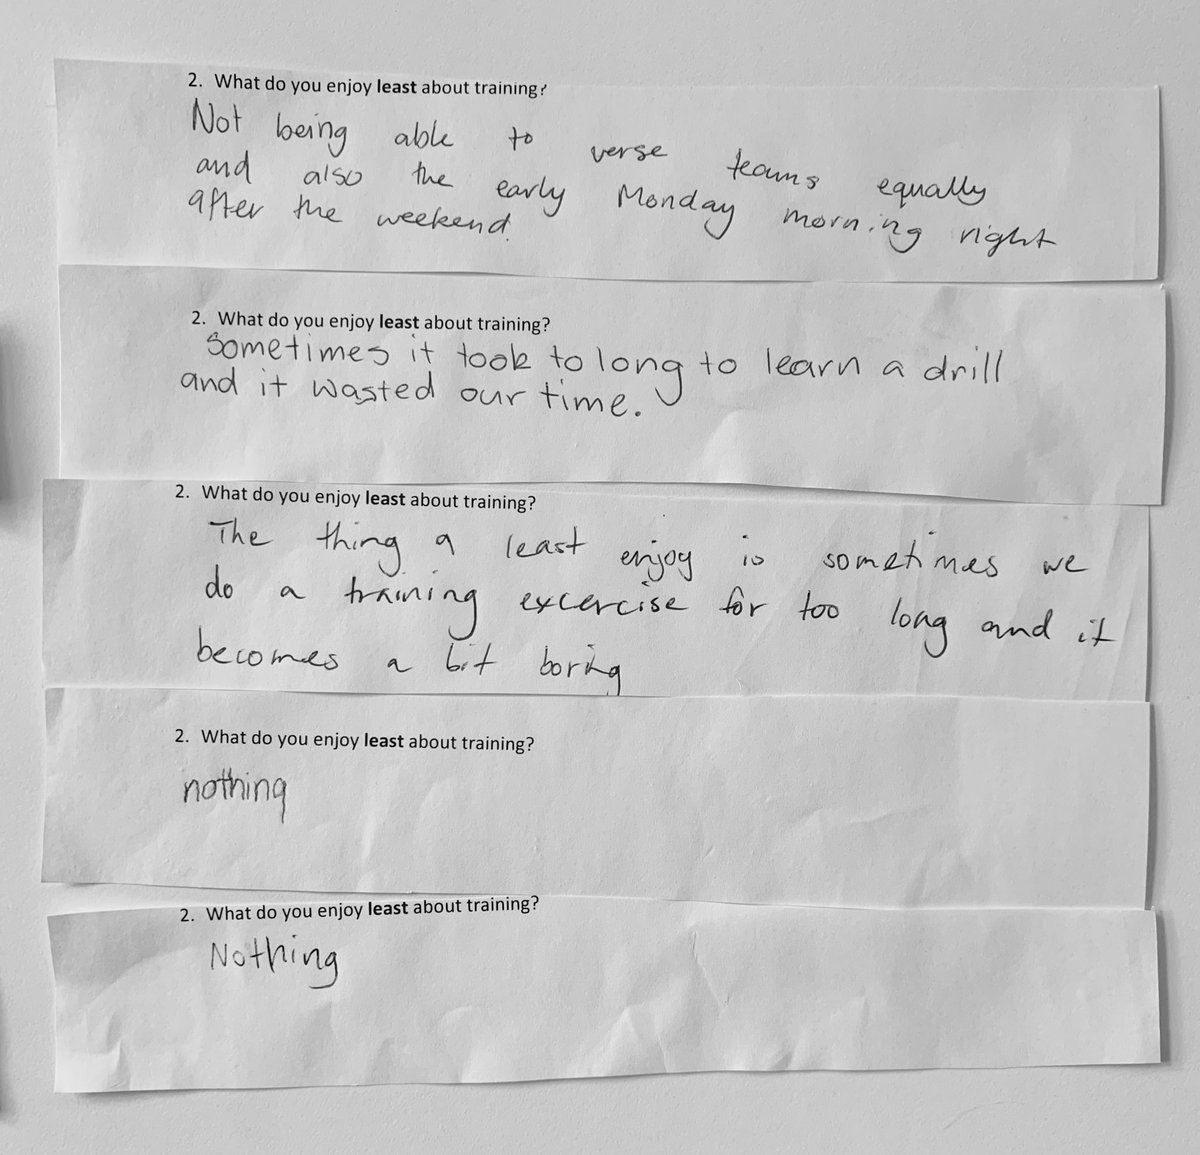 2. What do you enjoy least about training?
Not being able to verse teams equally
and also the early Monday morning right
after the weekend.
2. What do you enjoy least about training?
Sometimes it took to long to learn a drill
and it wasted our time.
2. What do you enjoy least about training?
The thing a least enjoy is sometimes we
do a training excercise for too long and it
becomes a bit boring
2. What do you enjoy least about training?
nothing
2. What do you enjoy least about training?
Nothing